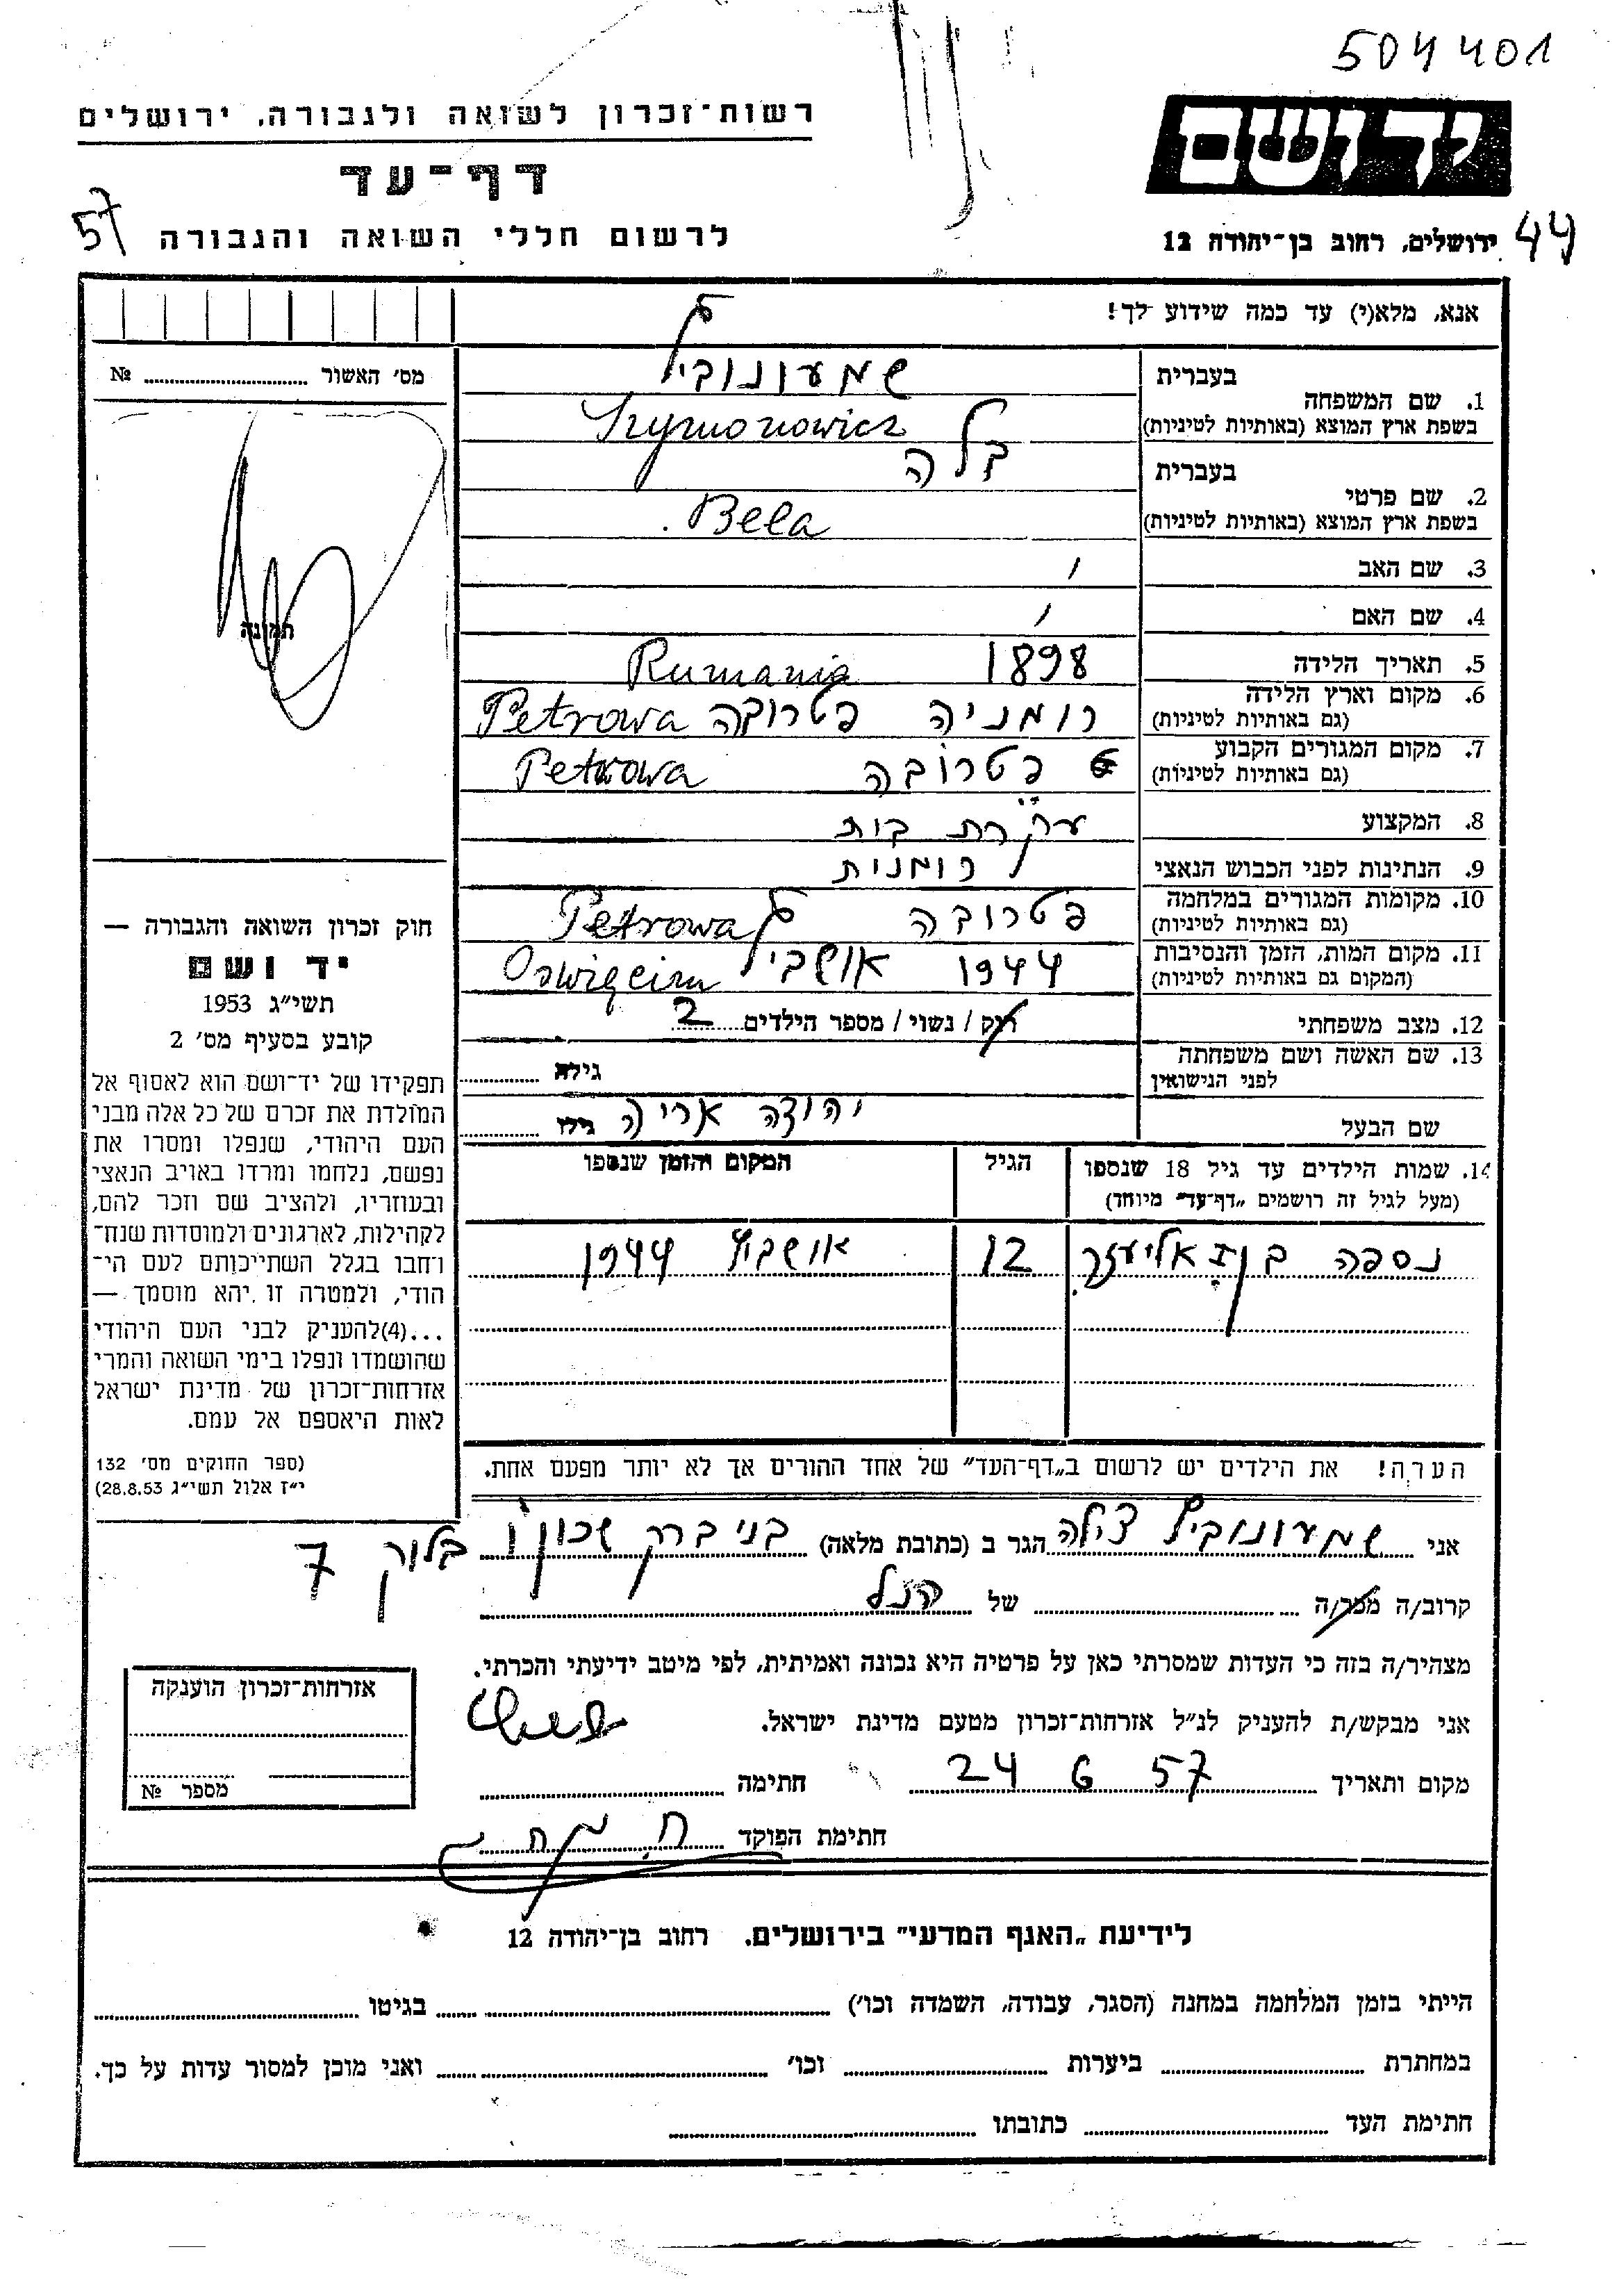 504401
יד ושם
רשות־זכרון לשואה ולגבורה, ירושלים
דף־עד
לרשום חללי השואה והגבורה
57
ירושלים, רחוב בן־יהודה 12
44
אנא, מלא(י) עד כמה שידוע לך!
מס׳ האשור № 
תמונה
1. שם המשפחה
בעברית שמעונוביץ
בשפת ארץ המוצא (באותיות לטיניות) Szymonowicz
2. שם פרטי
בעברית בלה
בשפת ארץ המוצא (באותיות לטיניות) Bela
3. שם האב /
4. שם האם /
5. תאריך הלידה 1898
Rumania
6. מקום וארץ הלידה (גם באותיות לטיניות) רומניה פטרובה Petrowa
7. מקום המגורים הקבוע (גם באותיות לטיניות) פטרובה Petrowa
8. המקצוע עקרת בית
9. הנתינות לפני הכבוש הנאצי רומנית
10. מקומות המגורים במלחמה (גם באותיות לטיניות) פטרובה Petrowa
11. מקום המות, הזמן והנסיבות (המקום גם באותיות לטיניות) 1944 אושביץ Oswięcim
12. מצב משפחתי רוק / נשוי / מספר הילדים 2
13. שם האשה ושם משפחתה לפני הנישואין גילה
שם הבעל יהודה אריה גילו
14. שמות הילדים עד גיל 18 שנספו הגיל המקום והזמן שנספו
(מעל לגיל זה רושמים „דף־עד” מיוחד)
נספה בן אליעזר 12 אושביץ 1944
הערה! את הילדים יש לרשום ב„דף־העד” של אחד ההורים אך לא יותר מפעם אחת.
חוק זכרון השואה והגבורה —
יד ושם
תשי״ג 1953
קובע בסעיף מס׳ 2
תפקידו של יד־ושם הוא לאסוף אל
המולדת את זכרם של כל אלה מבני
העם היהודי, שנפלו ומסרו את
נפשם, נלחמו ומרדו באויב הנאצי
ובעוזריו, ולהציב שם וזכר להם,
לקהילות, לארגונים ולמוסדות שנח־
רחבו בגלל השתייכותם לעם הי־
הודי, ולמטרה זו יהא מוסמך —
...(4) להעניק לבני העם היהודי
שהושמדו ונפלו בימי השואה והמרי
אזרחות־זכרון של מדינת ישראל
לאות היאספם אל עמם.
(ספר החוקים מס׳ 132
י״ז אלול תשי״ג 28.8.53)
אני שמעונוביץ צילה הגר ב (כתובת מלאה) בני ברק שכון ו׳ בלוק 7
קרוב/ה מכר/ה של הנ״ל
מצהיר/ה בזה כי העדות שמסרתי כאן על פרטיה היא נכונה ואמיתית, לפי מיטב ידיעתי והכרתי.
אני מבקש/ת להעניק לנ״ל אזרחות־זכרון מטעם מדינת ישראל.
מקום ותאריך 24 6 57 חתימה
חתימת הפוקד
אזרחות־זכרון הוענקה
מספר №
לידיעת „האגף המדעי” בירושלים. רחוב בן־יהודה 12
הייתי בזמן המלחמה במחנה (הסגר, עבודה, השמדה וכו׳) בגיטו
במחתרת ביערות וכו׳ ואני מוכן למסור עדות על כך.
חתימת העד כתובתו